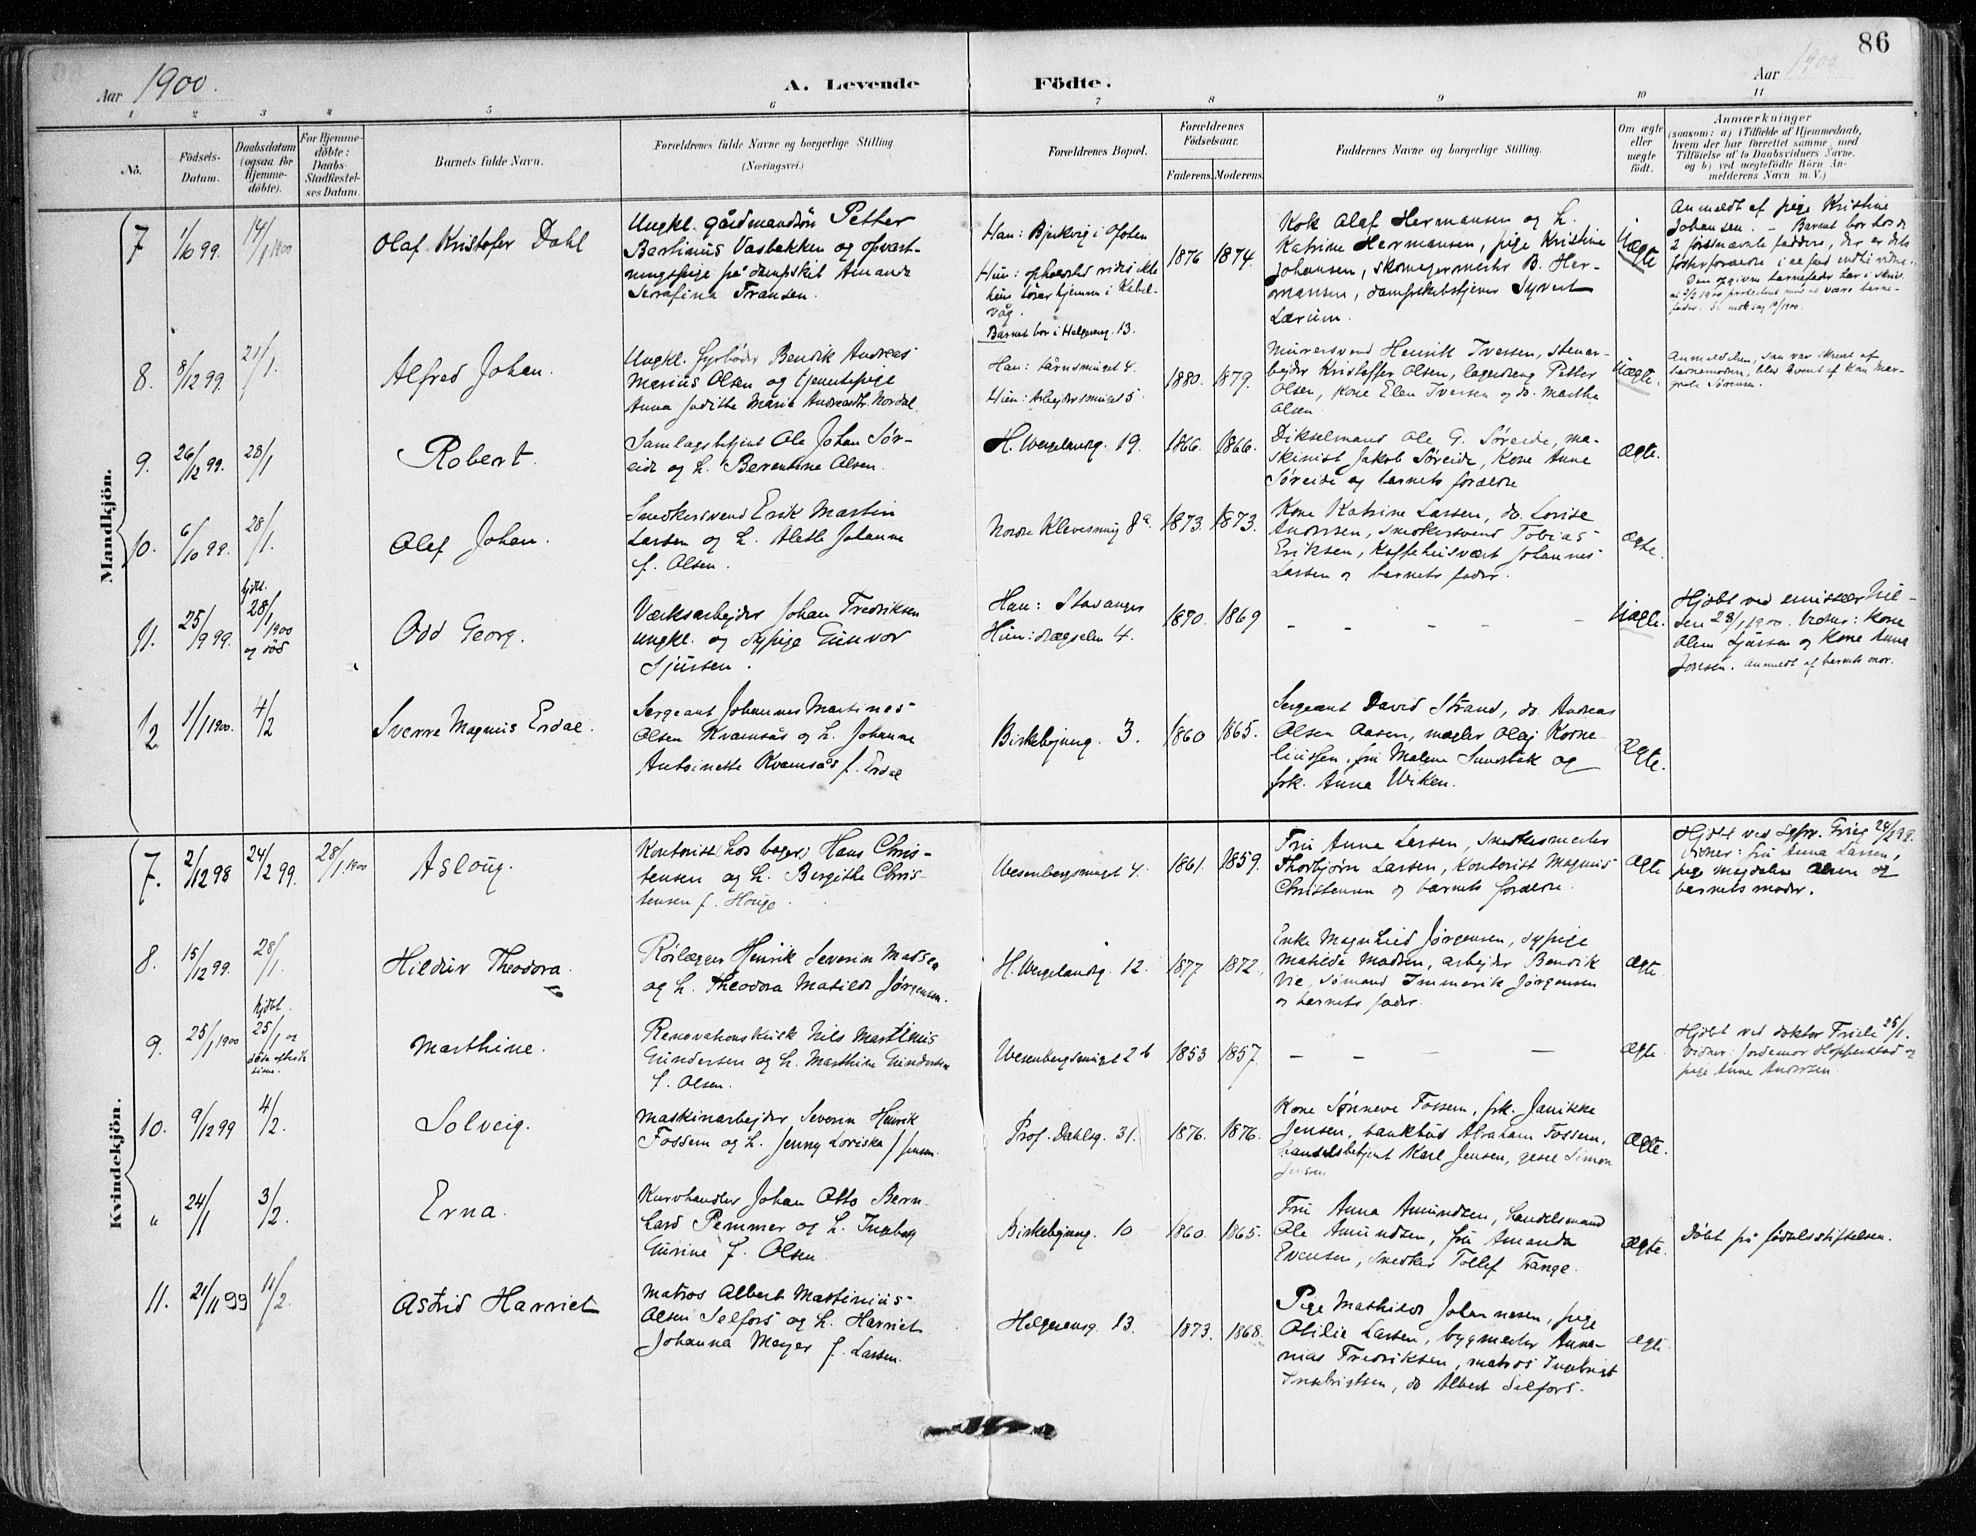 86
Aar 1900. A. Levende Födte. Aar 1900
1 2 3 4 5 6 7 8 9 10 11
No.
Födsels-
Datum.
Daabsdatum
(ogsaa for
Hjemme-
döbte).
For Hjemme-
döbte:
Daabs-
Stadfæstel-
ses Datum.
Barnets fulde Navn.
Forældrenes fulde Navne og borgerlige Stilling
(Næringsvei.)
Forældrenes Bopæl.
Forældrenes
Födselsaar.
Faderens. Moderens.
Faddernes Navne og borgerlige Stilling.
Om ægte
eller
uægte
födt.
Anmærkninger
(saasom: a) i Tilfælde af Hjemmedaab,
hvem der har forrettet samme, med
Tilföielse af to Daabsvidners Navne,
og b) ved uægtefödte Börn An-
melderens Navn m. V.)
Mandkjön.
7 1/10 99. 14/1 1900
Olaf Kristofer Dahl
Ungkl. gårdmandssøn Petter
Barthinius Vasbakken og opvart-
ningspige på dampskib Amanda
Serafina Fransen.
Han: Bjerkvig i Ofoten
Hun: opholdssted vides ikke
hun hører hjemme i Kabel-
våg.
Barnet bor i Helgesensg. 13.
1876 1874.
Kok Olaf Hermansen og h.
Katrine Hermansen, pige Kristine
Johansen, skomagermester B. Her-
mansen, dampskibstjener Syvert
Lærum.
Uægte
Anmeldt af pige Kristine
Johansen. - Barnet bor hos de
2 førstnævnte faddere, der er dets
8. 8/12 99. 21/1.
Alfred Johan.
Ungkl. fyrbøder Bendik Andreas
Marius Olsen og tjenestepige
Anna Judithe Marie Andreasdtr. Nordal.
Han: Tårnsmuget 4.
Hun: Arbejdersmuget 5.
1880. 1879.
Murersvend Henrik Iversen, stenar-
bejder Kristoffer Olsen, lagerdreng Petter
Olsen, kone Elen Iversen og do. Marthe
Olsen.
Uægte.
9. 26/12 99. 28/1
Robert.
Samlagsbetjent Ole Johan Sør-
eide og h. Berentine Olsen.
H. Wergelandsg. 19.
1866. 1866.
Dikselmand Ole G. Søreide, ma-
skinist Jakob Søreide, Kone Anne
Søreide og barnets forældre
ægte.
10. 6/10 99. 28/1.
Olaf Johan.
Snedkersvend Erik Martin
Larsen og h. Alethe Johanne
f. Olsen.
Nordre Klevesmug 8a.
1873. 1873.
Kone Katrine Larsen, do. Lovise
Andersen, snedkersvend Tobias
Eriksen, kaffehusvært Johannes
Larsen og barnets fader.
ægte.
11. 25/9 99. hjdbt. 28/1 1900 og død
Odd Georg.
Værksarbejder Johan Fredriksen
ungkl. og sypige Gunvor
Sjursen.
Han: Stavanger
Hun: Dræggselm 4.
1870. 1869
- - - - -
Uægte.
Hjdbt ved emissær Nil-
sen 28/1 1900. Vidner: Kone
Olene Sjursen og Kone Anna
Jonsen. Anmeldt af barnets mor.
12 1/1 1900. 4/2
Sverre Magnus Erdal.
Sergeant Johannes Martinus
Olsen Kvamsås og h. Johanne
Antoinette Kvamsås f. Erdal
Birkebejnerg. 3.
1860 1865.
Sergeant David Strand, do. Andreas
Olsen Aasen, mægler Olaf Korne-
liussen, fru Malene Sundbak og
frk. Anna Wiken.
Ægte.
Kvindekjön.
7. 2/12 98 24/2 99. 28/1 1900
Aslaug.
Kontorist (hos bager) Hans Chris-
tensen og h. Bergithe Chris-
tensen f. Hauge.
Wesenbergsmuget 4.
1861. 1859.
Fru Anna Larsen, snedkermester
Thorbjørn Larsen, Kontorist Magnus
Christensen og barnets forældre.
ægte
Hjdbt ved sgpr. Grieg 24/2 99.
Vidner: fru Anna Larsen,
pige Magdalene Olsen og
barnets moder.
8. 15/12 99. 28/1.
Hildur Theodora.
Rørlægger Henrik Severin Madsen
og h. Theodora Matilde Jørgensen.
H. Wergelandsg. 12.
1877. 1872.
Enke Magnhild Jørgensen, sypige
Matilde Madsen, arbejder Bendik
Vie, sømand Immerik Jørgensen
og barnets fader.
ægte.
9. 25/1 1900 hjdbt. 25/1 og
Marthine.
Renovationskusk Nils Martinus
Gundersen og h. Marthine Gundersen
f. Olsen.
Wesenbergsmuget 2b
1853 1857.
- - - -
ægte.
Hjdbt ved doktor Friele 25/1.
Vidner: Jordemor Hopperstad og
pige Anne Andersen.
10. 9/12 99 4/2.
Solveig.
Maskinarbejder Severin Henrik
Fossem og h. Jenny Loviska f. Jensen.
Prof. Dahlsg. 31.
1876. 1876.
Kone Sønneve Fossem, frk. Janikke
Jensen, bankbud Abraham Fossem,
handelsbetjent Karl Jensen, gesel Simon
Jensen
ægte.
" 24/1 3/2.
Erna.
Kurvhandler Johan Otto Bern-
hard Pemmer og h. Ingeborg
Gurine f. Olsen
Birkebejnerg. 10
1860. 1865.
Fru Anna Amundsen, handelsmand
Ole Amundsen, fru Amanda
Evensen, snedker Tollef Trange.
ægte.
Døbt på fødselsstiftelsen.
11. 21/11 99 11/2.
Astrid Harriet
Matros Albert Martinius
Olsen Selfors og h. Harriet
Johanna Meyer f. Larsen.
Helgesensg. 13.
1873. 1868.
Pige Mathilde Johannesen, pige
Otilie Larsen, bygmester Anna-
nias Fredriksen, matros Ingebrigt
Ingebrigtsen, do Albert Selfors.
ægte